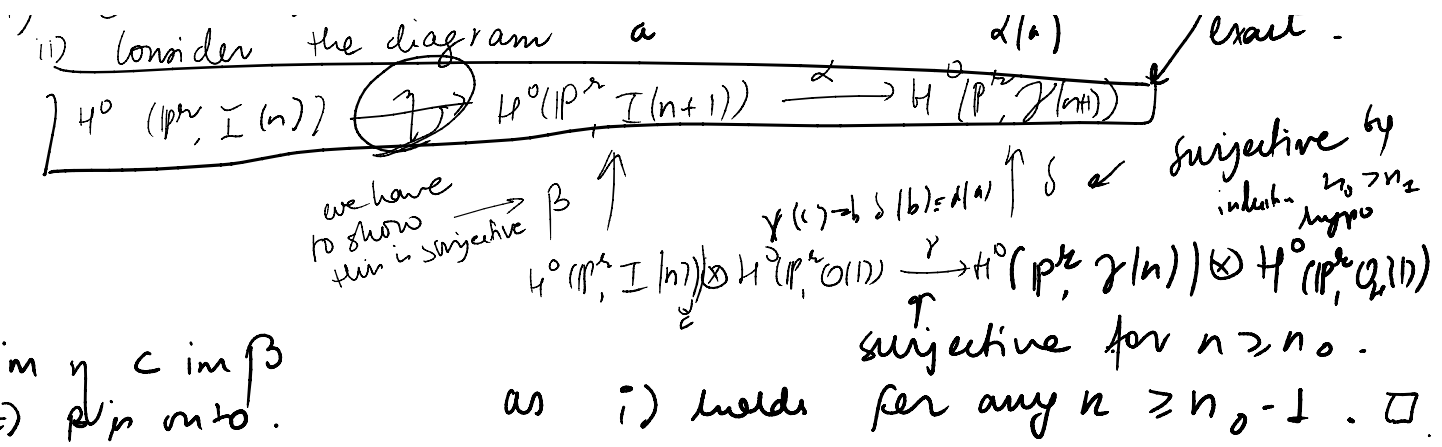 ii) Consider the diagram a α(a) exact.
H⁰(ℙʳ, I(n)) →η H⁰(ℙʳ, I(n+1)) →α H⁰(ℙʳ, 𝒥(n+1))
we have to show this is surjective → β ↑
γ(c)=b δ(b)=α(a) ↑ δ ← surjective by
n₀ > n₁
hypo
H⁰(ℙʳ, I(n)) ⊗ H⁰(ℙʳ, O(1)) →γ H⁰(ℙʳ, 𝒥(n)) ⊗ H⁰(ℙʳ, O(1))
c ↑
im η ⊂ im β surjective for n ≥ n₀.
β is onto. as i) holds for any n ≥ n₀-1. □